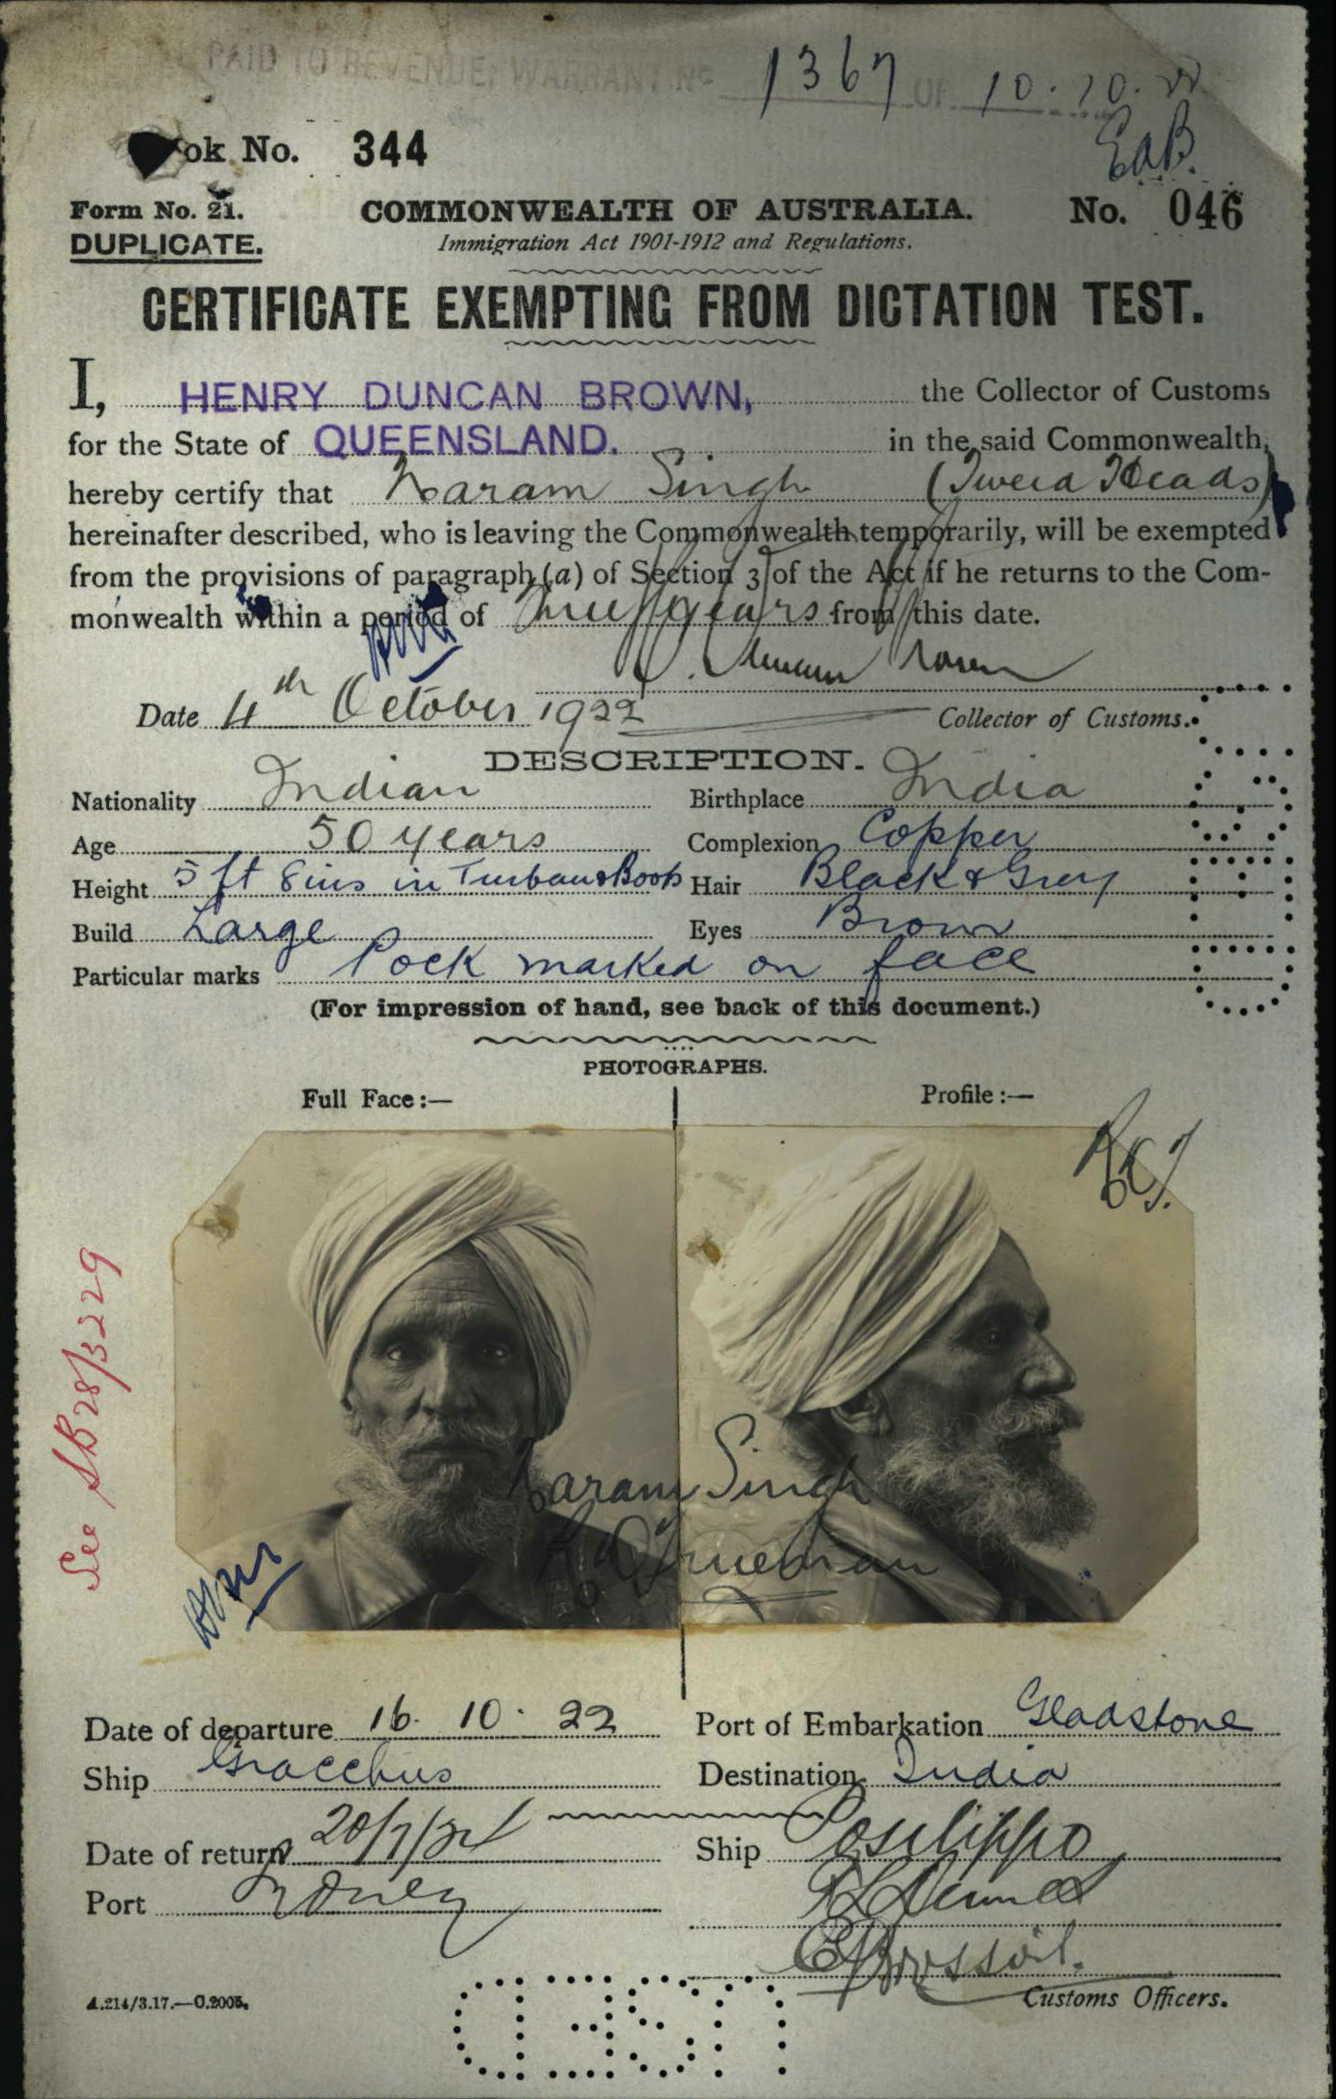 PAID TO REVENUE: WARRANT No 1367 OF 10.10.22
EaB.
ok No. 344
Form No. 21.
COMMONWEALTH OF AUSTRALIA.
No. 046
DUPLICATE.
Immigration Act 1901-1912 and Regulations.
CERTIFICATE EXEMPTING FROM DICTATION TEST.
I, HENRY DUNCAN BROWN, the Collector of Customs
for the State of QUEENSLAND. in the said Commonwealth,
hereby certify that Naram Singh (Tweed Heads)
hereinafter described, who is leaving the Commonwealth temporarily, will be exempted
from the provisions of paragraph (a) of Section 3 of the Act if he returns to the Com-
monwealth within a period of Three years from this date.
Date 4th October 1922
Collector of Customs.
DESCRIPTION.
Nationality Indian Birthplace India
Age 50 years Complexion Copper
Height 5 ft 8ins in Turban & Boots Hair Black & Grey
Build Large Eyes Brown
Particular marks Pock marked on face
(For impression of hand, see back of this document.)
PHOTOGRAPHS.
Full Face :— Profile :—
See SB28/3229
Naram Singh
Date of departure 16. 10. 22 Port of Embarkation Gladstone
Ship Gracchus Destination India
Date of return 20/7/24 Ship Posilippo
Port Sydney
Customs Officers.
A.214/3.17.—C.2005.